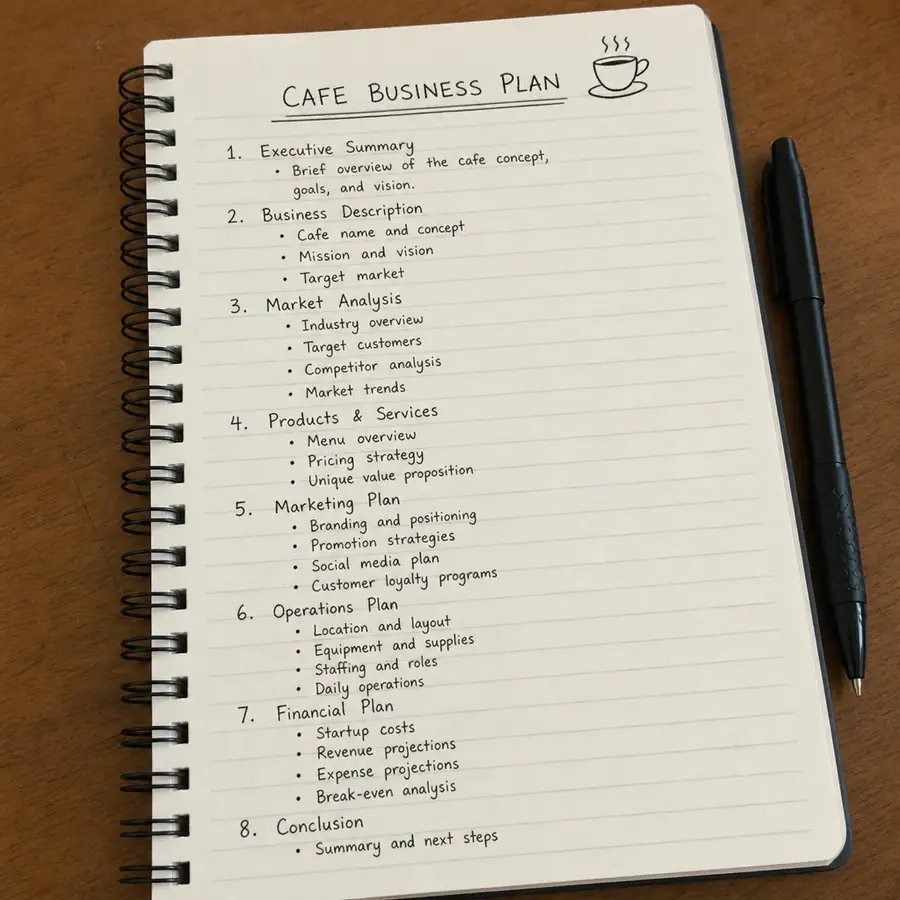 CAFE BUSINESS PLAN
1. Executive Summary
• Brief overview of the cafe concept,
goals, and vision.
2. Business Description
• Cafe name and concept
• Mission and vision
• Target market
3. Market Analysis
• Industry overview
• Target customers
• Competitor analysis
• Market trends
4. Products & Services
• Menu overview
• Pricing strategy
• Unique value proposition
5. Marketing Plan
• Branding and positioning
• Promotion strategies
• Social media plan
• Customer loyalty programs
6. Operations Plan
• Location and layout
• Equipment and supplies
• Staffing and roles
• Daily operations
7. Financial Plan
• Startup costs
• Revenue projections
• Expense projections
• Break-even analysis
8. Conclusion
• Summary and next steps